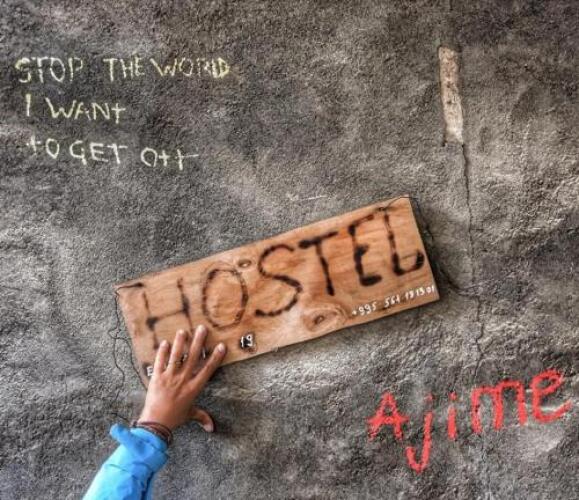 STOP THE WORLD
I WANT
TO GET OFF
HOSTEL
19
+995 561 131301
Ajime